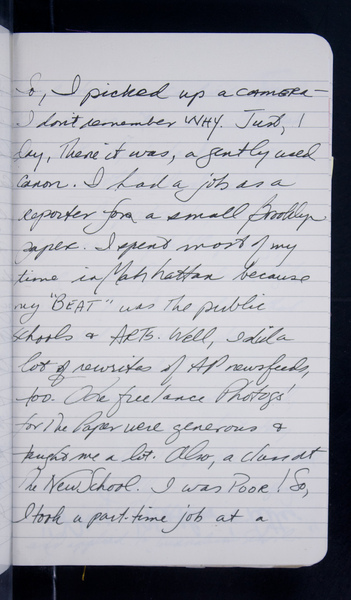 So, I picked up a CAMERA -
I don't remember WHY. Just, 1
day, There it was, a gently used
Canon. I had a job as a
reporter for a small Brooklyn
paper. I spent most of my
time in Manhattan because
my "BEAT" was The public
schools & ARTS. Well, I did a
lot of rewrites of AP newsfeeds,
too. The freelance Photogs
for The Paper were generous &
taught me a lot. Also, a class at
The New School. I was POOR! So,
I took a part-time job at a